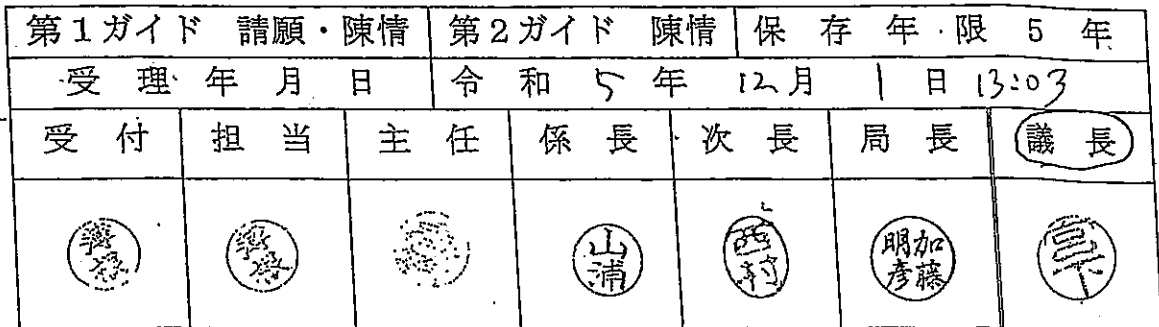 第1ガイド 請願・陳情 第2ガイド 陳情 保存年限 5年
受理年月日 令和5年12月1日 13:03
受付 担当 主任 係長 次長 局長 議長
山浦 西村 加藤明彦 宮下